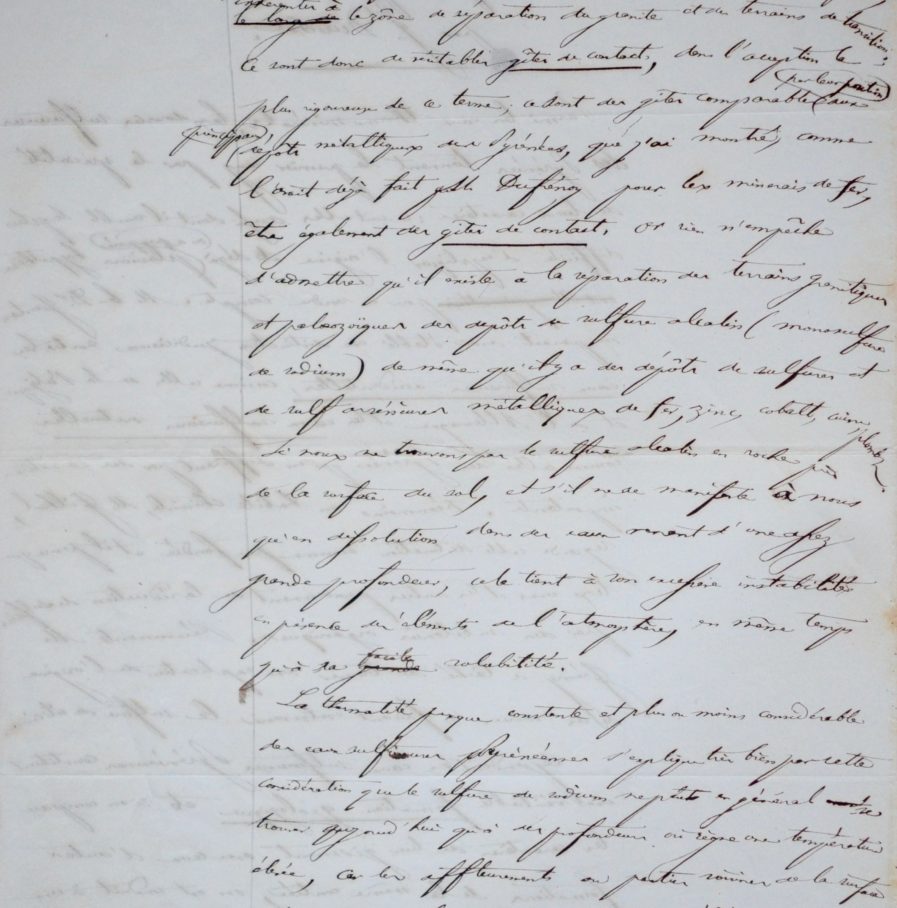 inhérentes à
le long de la zône de séparation du granite et des terrains de transition;
ce sont donc de véritables gîtes de contact, dans l'acception la
plus rigoureuse de ce terme; ce sont des gîtes comparables (par leur position) aux
(principaux) dépôts métalliques des Pyrénées, que j'ai montré, comme
l'avait déjà fait Dufrénoy pour les minerais de fer,
être également des gîtes de contact, or rien n'empêche
d'admettre qu'il existe à la séparation des terrains granitiques
et paleozoïques des dépôts de sulfure alcalin (monosulfure
de sodium) de même qu'il y a des dépôts de sulfures et
de sulfarséniures métalliques de fer, zinc, cobalt, cuivre, plomb,
Si nous ne trouvons pas le sulfure alcalin en roche près
de la surface du sol, et s'il ne se manifeste à nous
qu'en dissolution dans des eaux venant d'une assez
grande profondeur, cela tient à son excessive instabilité
en présence des éléments de l'atmosphère, en même temps
qu'à sa grande facile solubilité.
La thermalité presque constante et plus ou moins considérable
des eaux sulfureuses Pyrénéennes s'explique très bien par cette
considération que le sulfure de sodium ne peut en général se
trouver aujourd'hui qu'à des profondeurs où règne une température
élevée, car les affleurements ou parties voisines de la surface